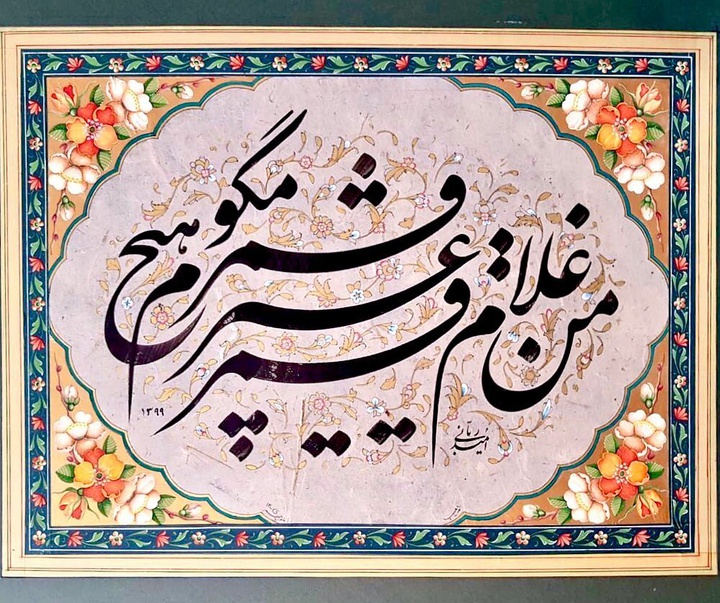 من غلام قمرم غیر قمر هیچ مگو
ربانی
۱۳۹۹